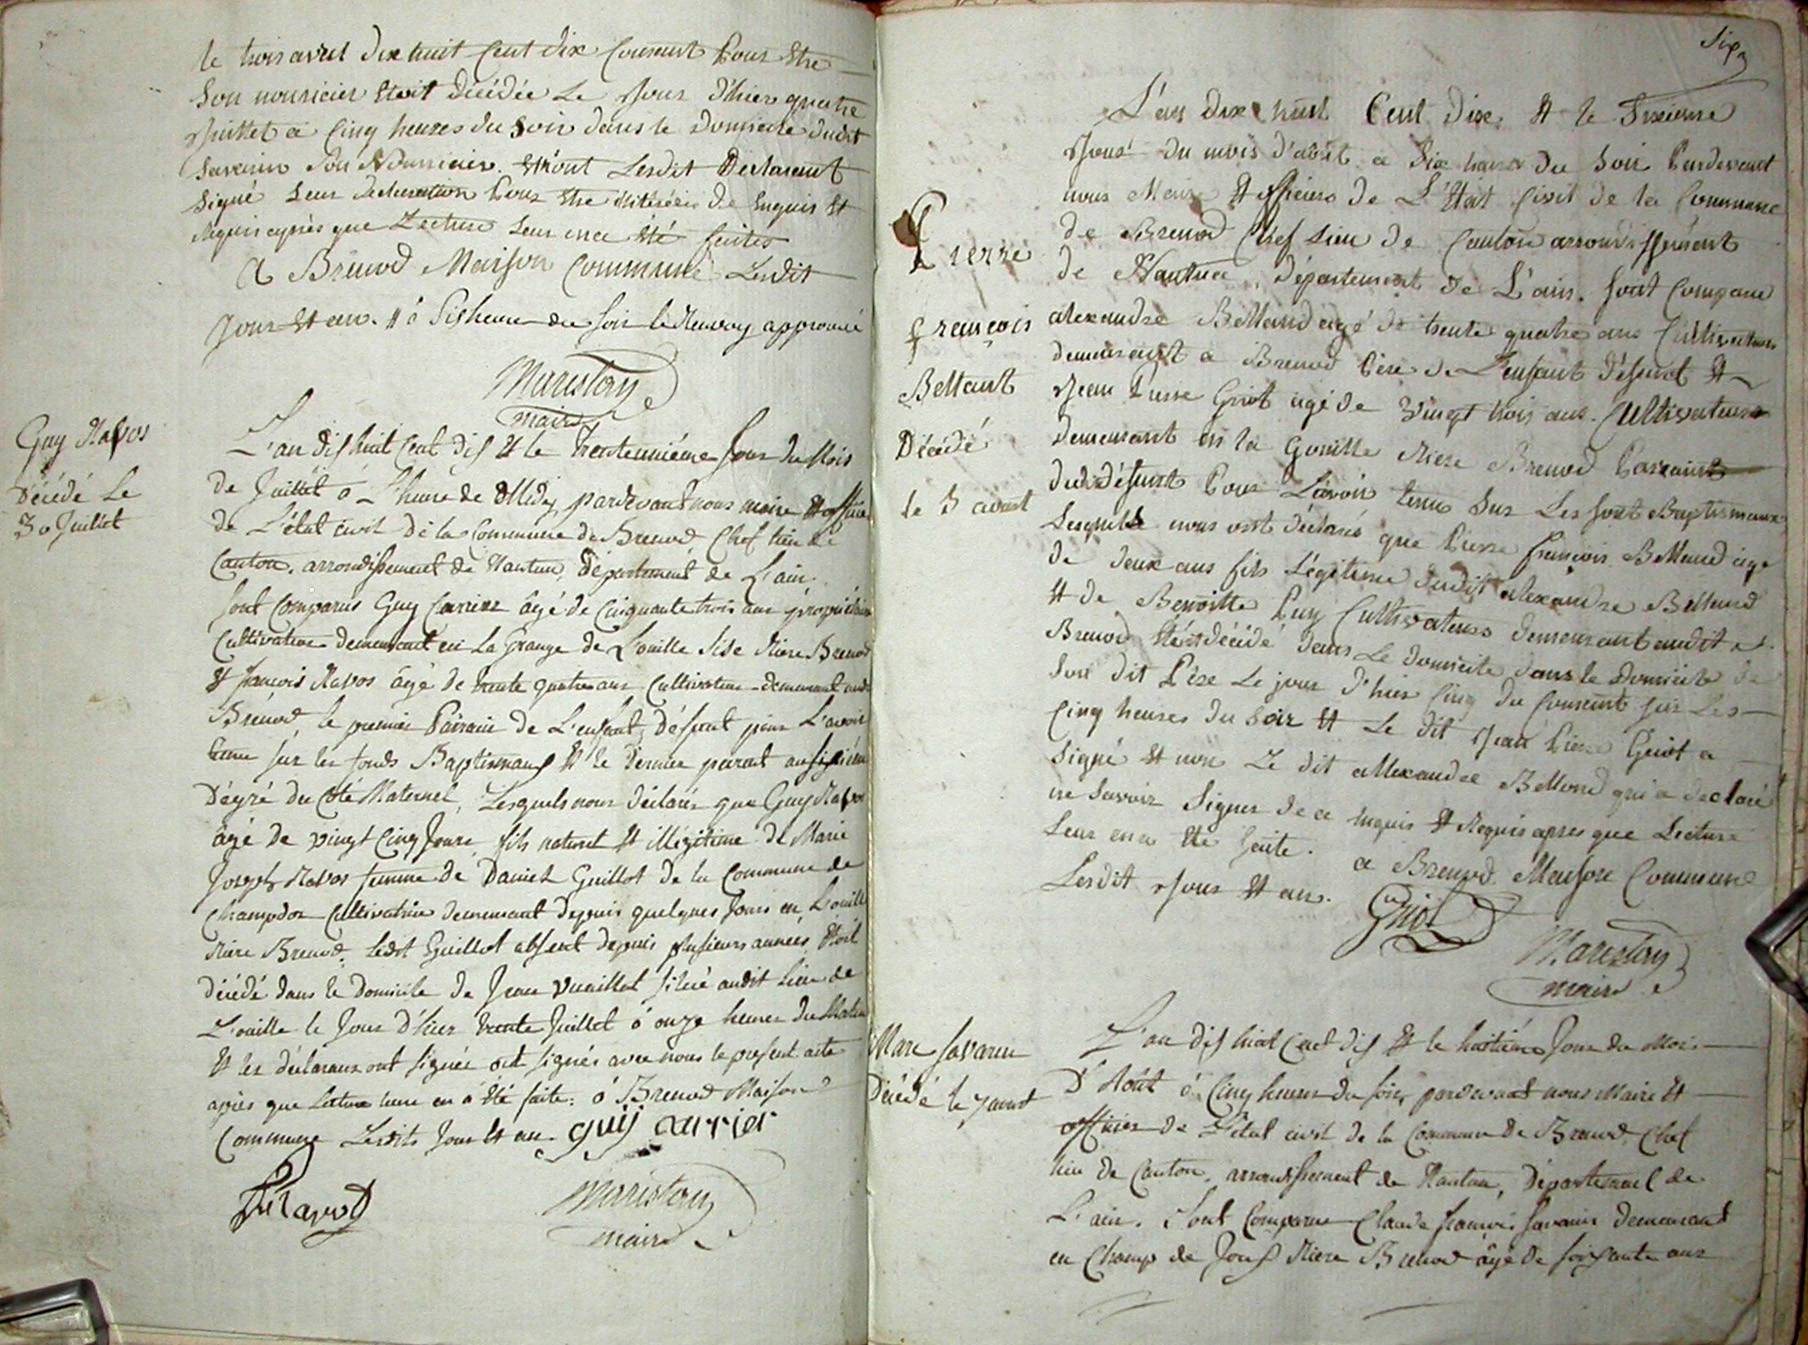 le trois avril dix huit Cent dix Courant Pour être
Son nouricier étoit décédée Le Jour d'hier quatre
Juillet a Cinq heures du Soir dans le Domicile dudit
Savarin Son Nourricier. et ont Lesdit Declarant
Signé Leur declaration Pour être de Enquis et
Requis après que Lecture Leur en a été faites
A Brénod Maison Commune Lesdit
Jour et an. et à Six heure du soir le Renvoy approuvé
Maristan
maire
Guy Ravos
Décédé Le
30 Juillet
L'an dix huit Cent dix et le trenteunième Jour du Mois
de Juillet à L'heure de Midy, pardevant nous maire et officier
de L'état civil de la Commune de Brenod Chef lieu de
Canton, arrondissement de Nantua, Département de L'ain.
Sont Comparus Guy Carrier âgé de Cinquante trois ans propriétaire
Cultivateur demeurant en La Grange de Louille Sise Riere Brenod
et francois Ravos âgé de trente quatre ans Cultivateur demeurant audit
Brénod le premier Pairain de L'enfant Défunt pour L'avoir
tenu sur les fonds Baptismaux et le Dernier parent au sixième
Dégré du Côté Maternel, Lesquels nous déclarés que Guy Ravos
âgé de vingt Cinq Jours fils naturel et illégitime de Marie
Joseph Ravos femme de Daniel Guillot de la Commune de
Champdor Cultivatrice demeurant depuis quelques Jours en Louille
Riere Brenod. ledit Guillot absent depuis plusieurs années, étoit
décédé dans le Domicile de Jean Vuaillat situé audit Lieu de
Louille le Jour d'hier trente Juillet à onze heures du Matin
et les déclarans ont signés avec nous le present acte
après que Lecture leur en a été faite: à Brenod Maison
Commune Lesdits Jour et an. guy carrier
fr Ravot
Maristan
maire
Six
Pierre
françois
Belland
Décédé
le 5 aoust
L'an dix huit Cent dix et le Sixieme
Jour du mois d'aout a Six heures du Soir Pardevant
nous Maire et officiers de L'état Civil de la Commune
de Brenod Chef Lieu de Canton arrondissement
de Nantua, Département de L'ain. Sont Comparu
alexandre Belland agé de trente quatre ans Cultivateur
demeurant a Brenod Père de L'enfant défunt et
Jean Pierre Griot agé de Vingt trois ans Cultivateur
demeurant en la Gouille Riere Brenod Parrain
dudit défunt Pour L'avoir tenu Sur Les font Baptismaux
Lesquels nous ont déclaré que Pierre francois Belland agé
de deux ans fils Légitime dudit alexandre Belland
et de Benoitte Puy Cultivateurs demeurant audit
Brenod étoit décédé dans Le domicile dans le Domicile de
Son dit Père Le jour d'hier Cinq du Courant sur Les
Cinq heures du Soir et Le dit Jean Pierre Griot a
Signé et non Le dit allexandre Belland qui a declaré
ne Savoir Signer de ce Enquis et Requis apres que Lecture
Leur en a été faite. a Brenod Maison Commune
Lesdit Jour et an.
Griot
Maristan
maire
Marc Savarin
Décédé le 7 aoust
L'an dix huit Cent dix et le huitième Jour du Mois
D'Août à Cinq heures du soir, pardevant nous Maire et
officier de L'état civil de la Commune de Brenod, Chef
lieu de Canton, arrondissement de Nantua, Département de
L'ain. Sont Comparus Claude francois Savarin demeurant
en Champ de Joux Riere Brenod âgé de soixante ans